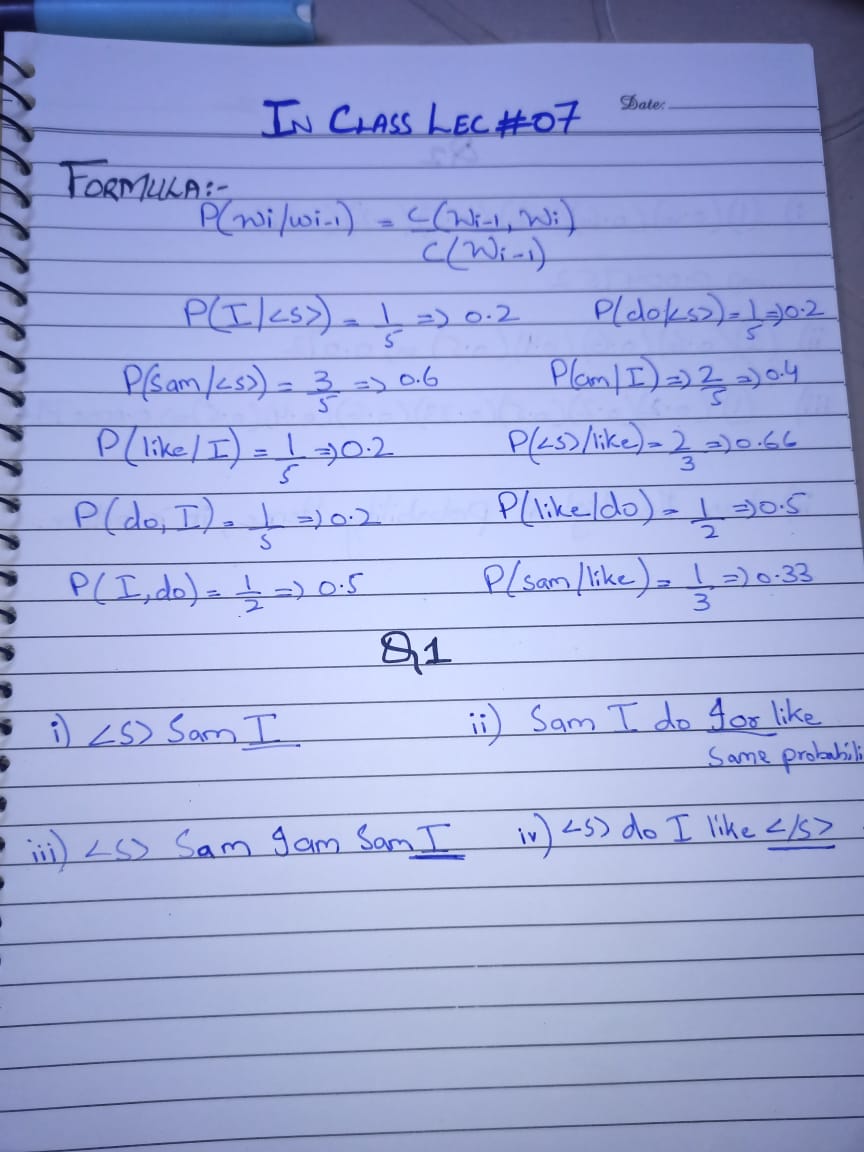 IN CLASS LEC #07 Date:
FORMULA:-
P(wi/wi-1) = C(Wi-1, Wi)
C(Wi-1)
P(I/<s>) = 1/5 => 0.2 P(do/<s>) = 1/5 => 0.2
P(Sam/<s>) = 3/5 => 0.6 P(am/I) => 2/5 => 0.4
P(like/I) = 1/5 => 0.2 P(<s>/like) = 2/3 => 0.66
P(do, I) = 1/5 => 0.2 P(like/do) = 1/2 => 0.5
P(I, do) = 1/2 => 0.5 P(sam/like) = 1/3 => 0.33
Q1
i) <S> Sam I ii) Sam I do I or like
Same probabili
iii) <S> Sam I am Sam I iv) <S> do I like </S>